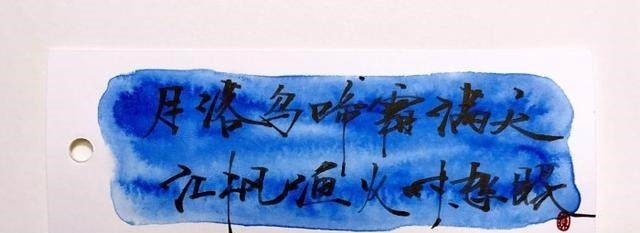 月落乌啼霜满天
江枫渔火对愁眠